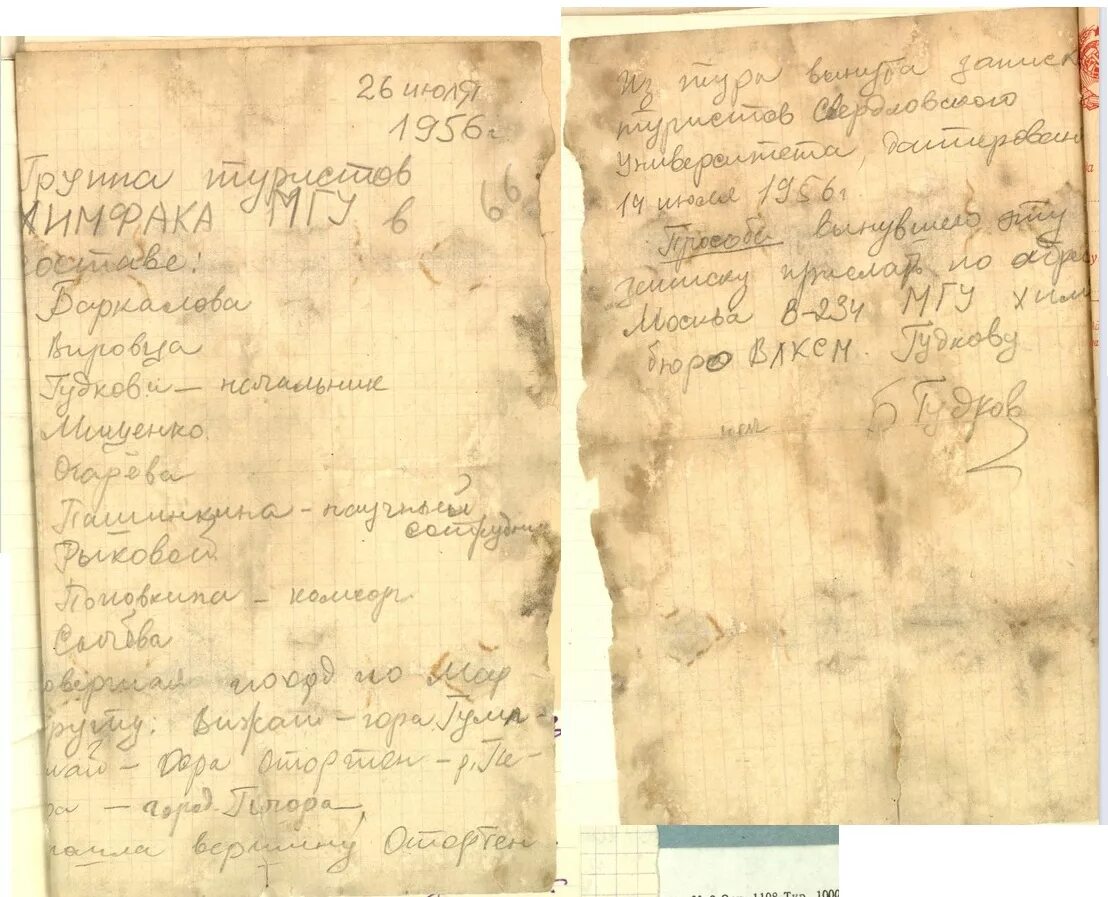 26 июля
1956г
Группа туристов
ХИМФАКА МГУ в
66
составе:
Баркалова
Вировца
Гудкова – начальник
Мищенко
Огарёва
Пашинкина – научный
сотрудник
Рыковой
Поповкина –
Сычёва
совершая поход по мар
шруту: Вижай – гора
– гора Отортен – р. Пе-
ра – город Печора
вершину Отортен
Из тура вынута записка
туристов Свердловского
Университета, датирован
14 июля 1956г
Просьба вынувшего эту
записку прислать по адрес
Москва В-234 МГУ хим
бюро ВЛКСМ. Гудкову
нач Б Гудков